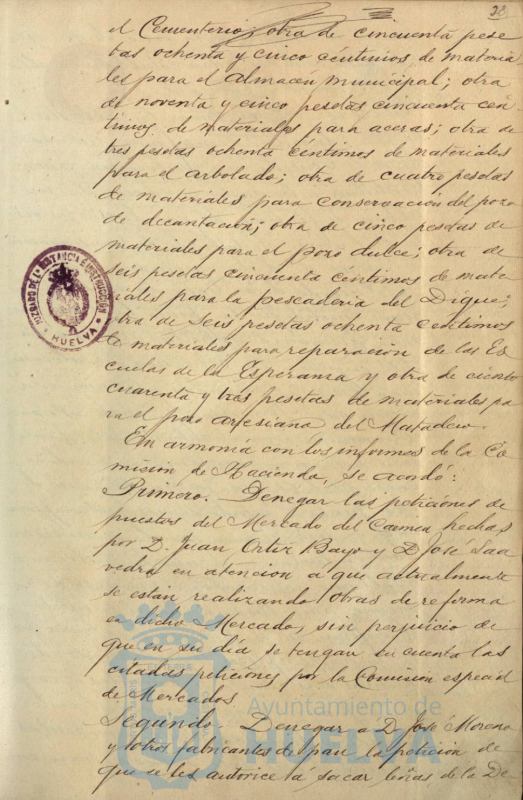 28
el Cementerio; otra de cincuenta pese
tas ochenta y cinco céntimos de materia
les para el Almacén municipal; otra
de noventa y cinco pesetas cincuenta cén
timos de materiales para aceras; otra de
tres pesetas ochenta céntimos de materiales
para el arbolado; otra de cuatro pesetas
de materiales para conservación del pozo
de decantación; otra de cinco pesetas de
materiales para el pozo dulce; otra de
seis pesetas cincuenta céntimos de mate
riales para la pescadería del Dique;
otra de seis pesetas ochenta céntimos
de materiales para reparación de las Es
cuelas de la Esperanza y otra de ciento
cuarenta y tres pesetas de materiales pa
ra el pozo artesiano del Matadero.
En armonía con los informes de la Co
misión de Hacienda, se acordó:
Primero. Denegar las peticiones de
puestos del Mercado del Carmen hechas
por D. Juan Ortiz Bayo y D. José Saa
vedra en atencion á que actualmente
se están realizando obras de reforma
en dicho Mercado, sin perjuicio de
que en su día se tengan en cuenta las
citadas peticiones por la Comisión especial
de Mercados.
Segundo. Denegar a D. José Moreno
y otros fabricantes de pan la petición de
que se les autorice á sacar leñas de la De
JUZGADO DE 1ª INSTANCIA E INSTRUCCIÓN
HUELVA
Ayuntamiento de
HUELVA